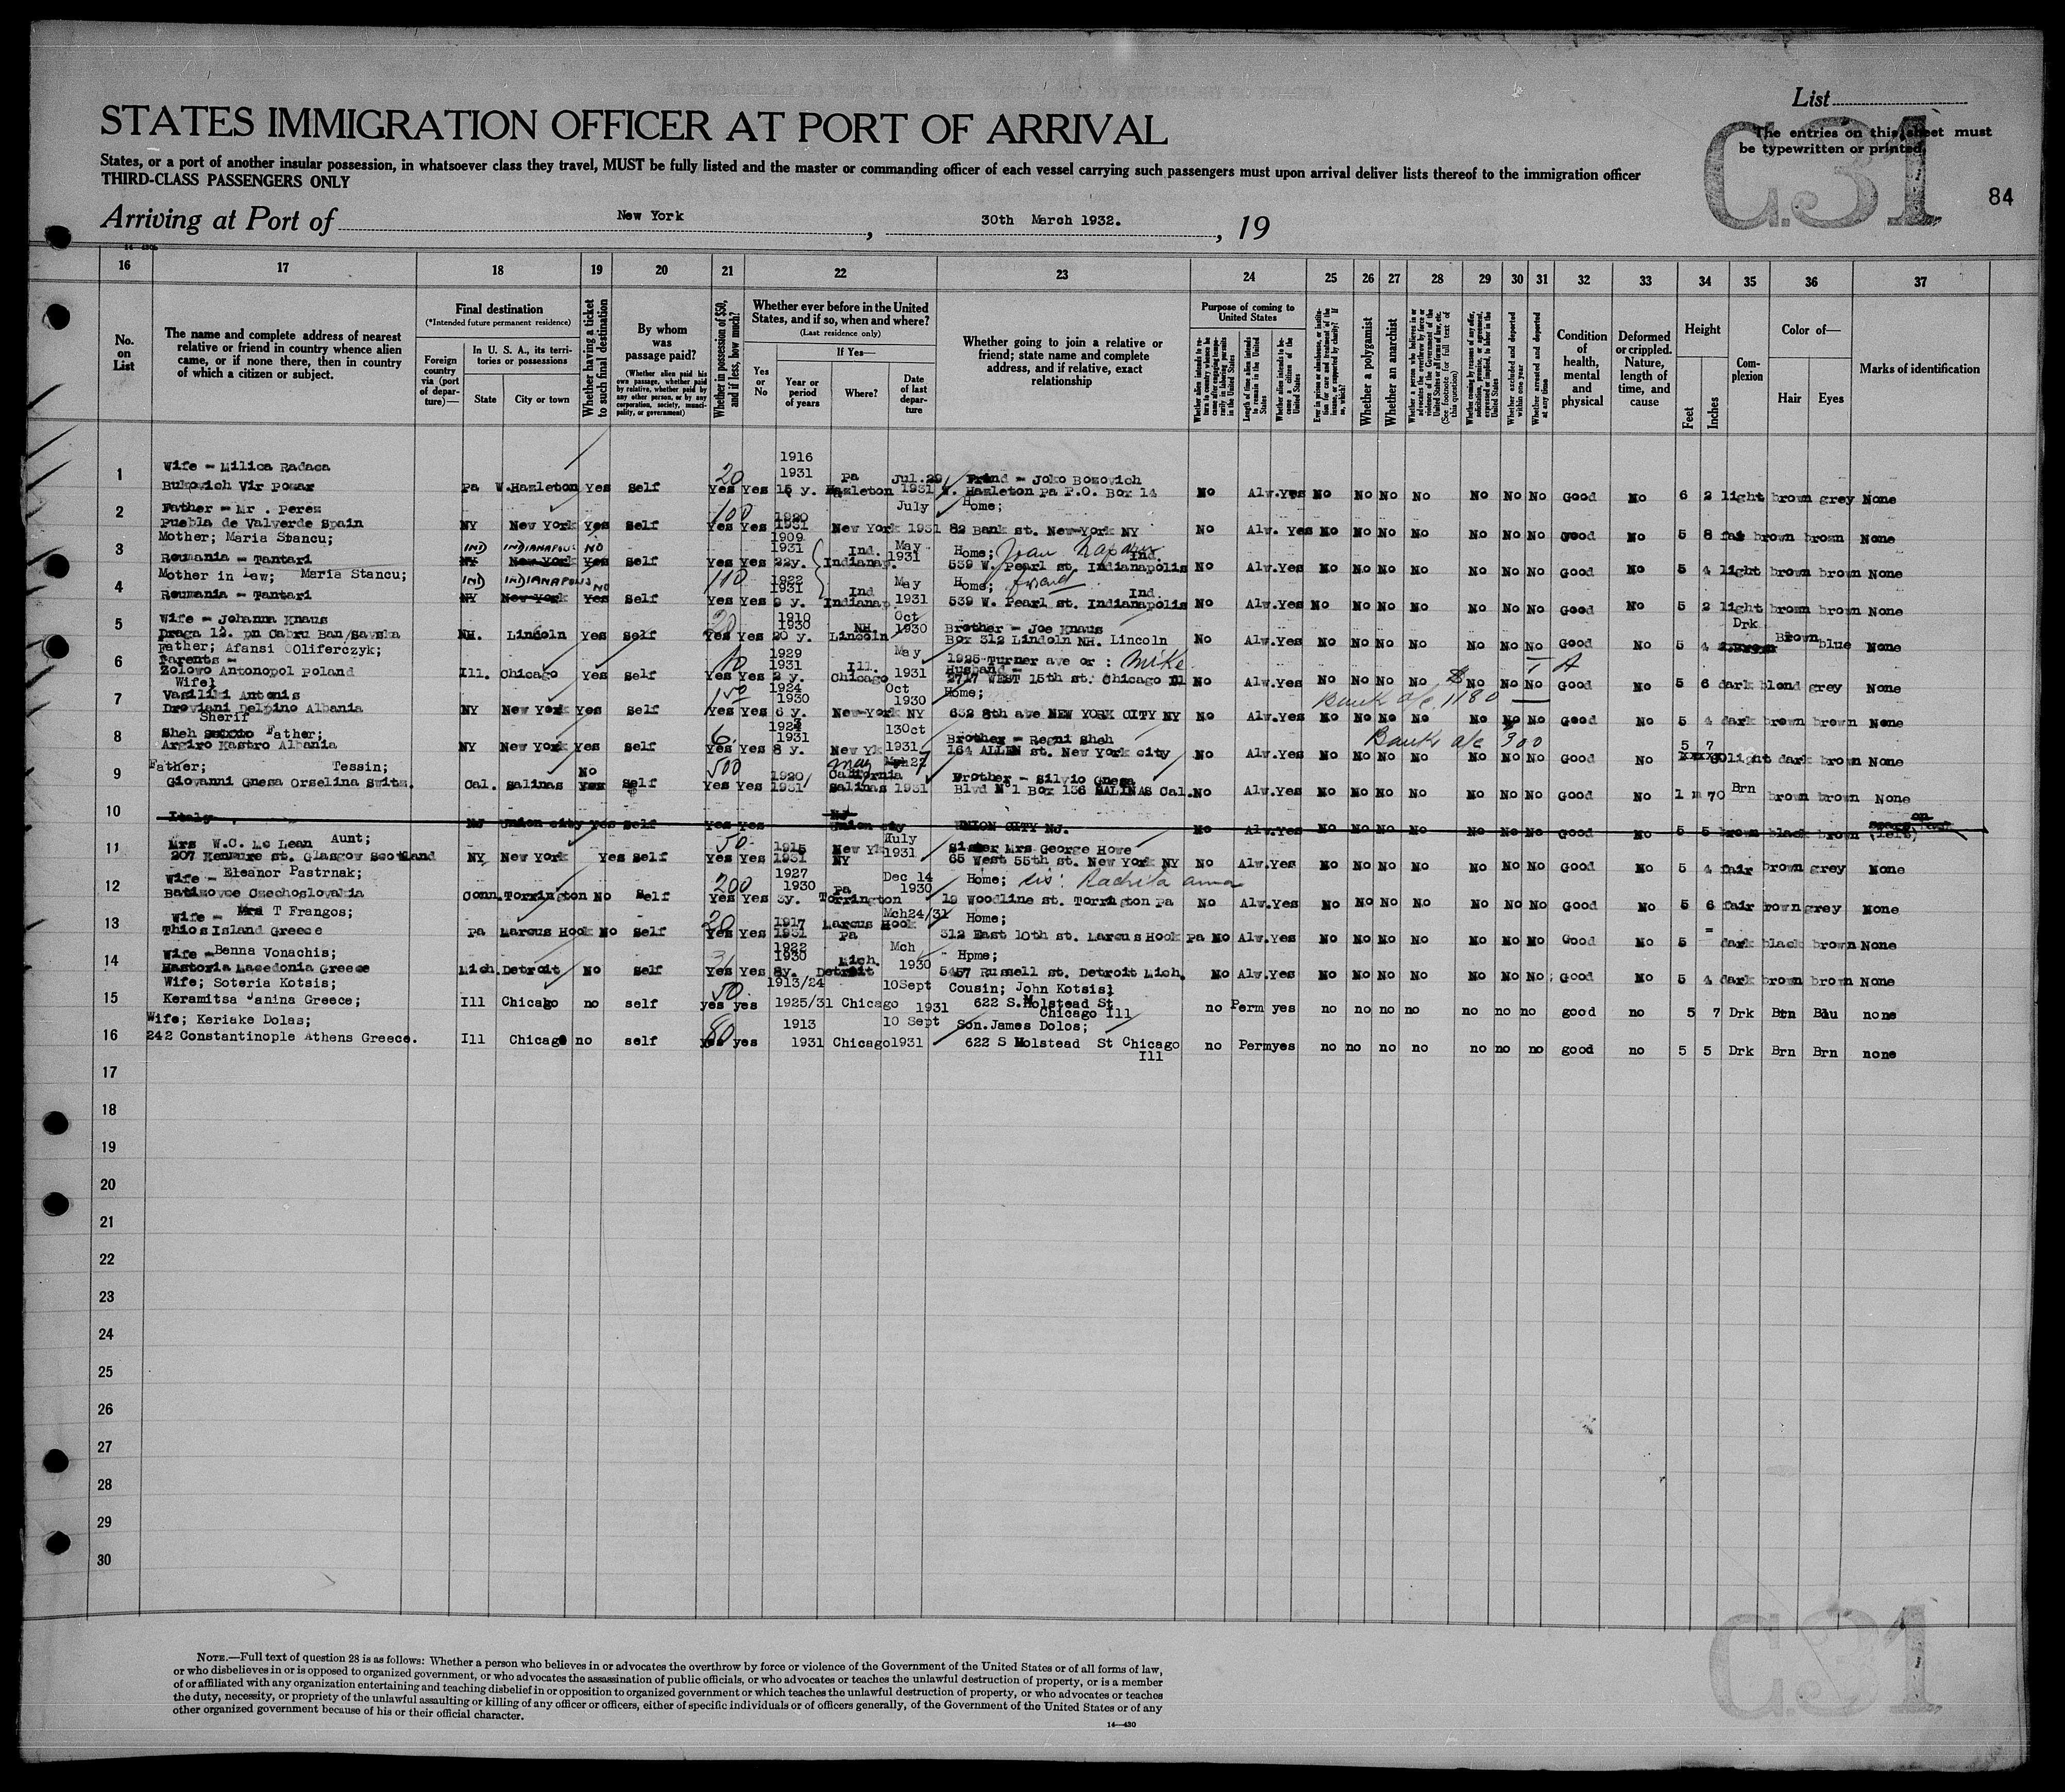 List
C.31
The entries on this sheet must
be typewritten or printed.
84
STATES IMMIGRATION OFFICER AT PORT OF ARRIVAL
States, or a port of another insular possession, in whatsoever class they travel, MUST be fully listed and the master or commanding officer of each vessel carrying such passengers must upon arrival deliver lists thereof to the immigration officer
THIRD-CLASS PASSENGERS ONLY
Arriving at Port of New York, 30th March 1932., 19
16 17 18 19 20 21 22 23 24 25 26 27 28 29 30 31 32 33 34 35 36 37
No. on List
The name and complete address of nearest relative or friend in country whence alien came, or if none there, then in country of which a citizen or subject.
Final destination
(*Intended future permanent residence)
Foreign country via (port of departure)—
In U. S. A., its territories or possessions
State
City or town
Whether having a ticket to such final destination
By whom was passage paid?
(Whether alien paid his own passage, whether paid by relative, whether paid by any other person, or by any corporation, society, municipality, or government)
Whether in possession of $50, and if less, how much?
Whether ever before in the United States, and if so, when and where?
(Last residence only)
Yes or No
If Yes—
Year or period of years
Where?
Date of last departure
Whether going to join a relative or friend; state name and complete address, and if relative, exact relationship
Purpose of coming to United States
Length of time alien intends to remain in the United States
Whether alien intends to become a citizen of the United States
Whether a polygamist
Whether an anarchist
Whether excluded and deported within one year
Whether arrested and deported at any time
Condition of health, mental and physical
Deformed or crippled. Nature, length of time, and cause
Height
Feet
Inches
Complexion
Color of—
Hair
Eyes
Marks of identification
1 Wife - Milica Radaca 20 1916 1931 Pa Jul.29 Friend - Joko Bozovich
Bukovich Vir Pozar Pa W.Hazleton Yes Self Yes Yes 15 y. Hazleton 1931 W. Hazleton Pa P.O. Box 14 No Alw. Yes No No No No No No No Good No 6 2 light brown grey None
2 Father - Mr . Perez 100 1920 July Home;
Puebla de Valverde Spain NY New York Yes Self Yes Yes 1931 New York 1931 82 Bank st. New-York NY No Alw. Yes No No No No No No No Good No 5 8 fair brown brown None
3 Mother; Maria Stancu; IND INDIANAPOLIS NO 1909 1931 Ind. May Home; Joan
Roumania - Tantari NY New York Yes Self Yes Yes 22y. Indianap. 1931 539 W. Pearl st. Indianapolis Ind. No Alw.Yes No No No No No No No Good No 5 4 light brown brown None
4 Mother in Law; Maria Stancu; IND INDIANAPOLIS NO 110 1922 1931 Ind May Home; friend
Roumania - Tantari NY New York Yes Self Yes Yes 9 y. Indianap. 1931 539 W. Pearl st. Indianapolis Ind. No Alw.Yes No No No No No No No Good No 5 2 light brown brown None
5 Wife - Johanna Knaus 20 1910 1930 NH. Oct Brother - Joe Knaus Drk
Draga 12. pn Cabru Ban/Savska NH. Lincoln Yes Self Yes Yes 20 y. Lincoln 1930 Box 312 Lindoln NH. Lincoln No Alw.Yes No No No No No No No Good No 5 4 Brown blue None
6 Father; Afansi Oliferczyk; 10 1929 1931 Ill. May 1925 Turner ave or : Mike
Parents - Husband -
Zolowo Antonopol Poland Ill. Chicago Yes Self Yes Yes 2 y. Chicago 1931 2717 WEST 15th st. Chicago Ill No Alw.Yes No No No No No No No Good No 5 6 dark blond grey None
7 Wife; 150 1924 1930 Oct Home; Bank a/c $ 1180
Vasiliki Antonis
Droviani Delpino Albania NY New York Yes Self Yes Yes 6 y. New-York NY 1930 632 8th ave NEW YORK CITY NY No Alw.Yes No No No No No No No Good No 5 4 dark brown brown None
8 Sherif
Sheh Father; 6. 1931 13Oct Brother - Regni Sheh Bank a/c 300 5 7
Argiro Kastro Albania NY New York Yes Self Yes Yes 8 y. New Yk 1931 164 ALLEN st. New York city No Alw.Yes No No No No No No No Good No light dark brown None
9 Father; Tessin; No 500 1920 California May Mch27 Brother - Silvio Gnesa Brn
Giovanni Gnesa Orselina Switz. Cal. Salinas Yes Self Yes Yes 1931 Salinas 1931 Blvd No1 Box 136 SALINAS Cal. No Alw.Yes No No No No No No No Good No 1 m 70 brown brown None
10 Italy NJ Union city Yes Self Yes Yes NJ Union city UNION CITY NJ. No Alw.Yes No No No No No No No Good No 5 5 brown black brown on (left)
11 Mrs W.C. Mc Lean Aunt; 50 1915 New Yk July Sister Mrs George Howe
207 Kenmure st. Glasgow Scotland NY New York Yes Self Yes Yes 1931 NY 1931 65 West 55th st. New York NY No Alw.Yes No No No No No No No Good No 5 4 fair brown grey None
12 Wife - Eleanor Pastrnak; 200 1927 1930 Pa Dec 14 Home; sis: Rachita anna
Batizovce Czechoslovakia Conn. Torrington No Self Yes Yes 3y. Torrington 1930 19 Woodline st. Torrington Pa No Alw.Yes No No No No No No No Good No 5 6 fair brown grey None
13 Wife - Mrs T Frangos; 20 1917 Marcus Hook Mch24/31 Home;
Thios Island Greece Pa Marcus Hook No Self Yes Yes 1931 Pa 312 East 10th st. Marcus Hook Pa No Alw.Yes No No No No No No No Good No 5 = dark black brown None
14 Wife - Benna Vonachis; 1922 1930 Mich. Mch Hpme;
Hastoria Macedonia Greece Mich. Detroit No Self Yes Yes 8y. Detroit 1930 5457 Russell st. Detroit Mich. No Alw.Yes No No No No No No No Good No 5 4 dark brown brown None
15 Wife; Soteria Kotsis; 50 1913/24 10Sept Cousin; John Kotsis;
Keramitsa Janina Greece; Ill Chicago no self yes yes 1925/31 Chicago 1931 622 S.Holstead St Chicago Ill no Perm yes no no no no no no no good no 5 7 Drk Brn Blu none
16 Wife; Keriake Dolas; 80 1913 10 Sept Son.James Dolos;
242 Constantinople Athens Greece. Ill Chicago no self yes yes 1931 Chicago 1931 622 S Holstead St Chicago Ill no Perm yes no no no no no no no good no 5 5 Drk Brn Brn none
17
18
19
20
21
22
23
24
25
26
27
28
29
30
NOTE.—Full text of question 28 is as follows: Whether a person who believes in or advocates the overthrow by force or violence of the Government of the United States or of all forms of law,
or who disbelieves in or is opposed to organized government, or who advocates the assassination of public officials, or who advocates or teaches the unlawful destruction of property, or is a member
of or affiliated with any organization entertaining and teaching disbelief in or opposition to organized government or which teaches the unlawful destruction of property, or who advocates or teaches
the duty, necessity, or propriety of the unlawful assaulting or killing of any officer or officers, either of specific individuals or of officers generally, of the Government of the United States or of any
other organized government because of his or their official character.
14—430
C.31